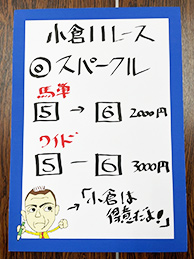 小倉11レース
◎スパークル
馬単
5→6 2000円
ワイド
5－6 3000円
→「小倉は
得意だよ!」